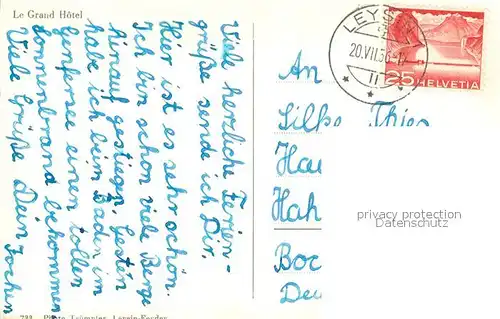 Le Grand Hôtel
Viele herzliche Ferien-
grüße sende ich Dir.
Hier ist es sehr schön.
Ich bin schon viele Berge
hinauf gestiegen. Gestern
habe ich beim Baden im
Genfersee einen tollen
Sonnenbrand bekommen.
Viele Grüße Dein Jochen
LEYSIN
20.VII.56
25 HELVETIA
An
Silke
Hau
Hah
Boc
Deu
privacy protection
Datenschutz